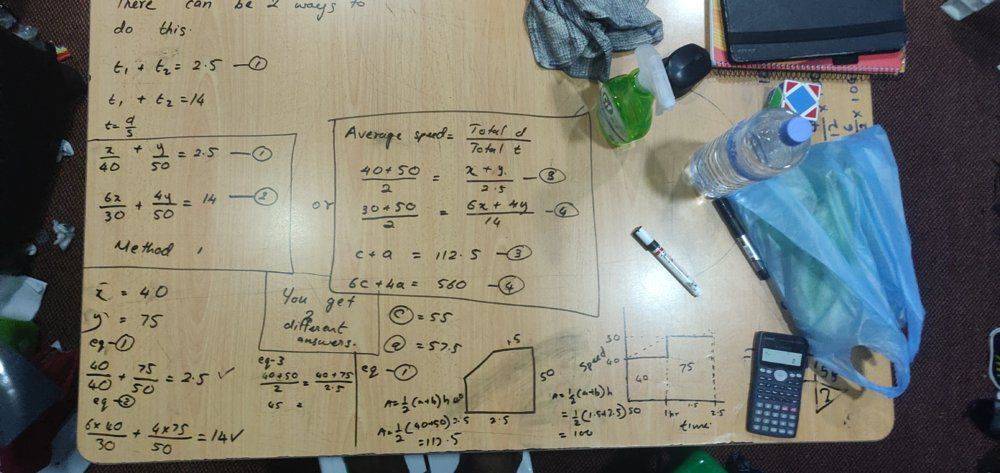 There can be 2 ways to
do this.
t₁ + t₂ = 2.5 — ①
t₁ + t₂ = 14
t = d/s
x/40 + y/50 = 2.5 — ①
6x/30 + 4y/50 = 14 — ②
Method 1
or
Average speed = Total d / Total t
(40+50)/2 = (x+y)/2.5 — ③
(30+50)/2 = (6x+4y)/14 — ④
c + a = 112.5 — ③
6c + 4a = 560 — ④
x = 40
y = 75
eq - ①
40/40 + 75/50 = 2.5 ✓
eq - ②
(6×40)/30 + (4×75)/50 = 14 ✓
You get
2
different
answers.
eq-3
(40+50)/2 = (40+75)/2.5
45 =
ⓒ = 55
ⓐ = 57.5
eq - ①
A = ½(a+b)h
A = ½(40+50)
= 112.5
1.5
50
40
2.5
A = ½(a+b)h
= ½(1.5+2.5)50
= 100
Speed
50
40
40
75
1hr
1.5
2.5
time